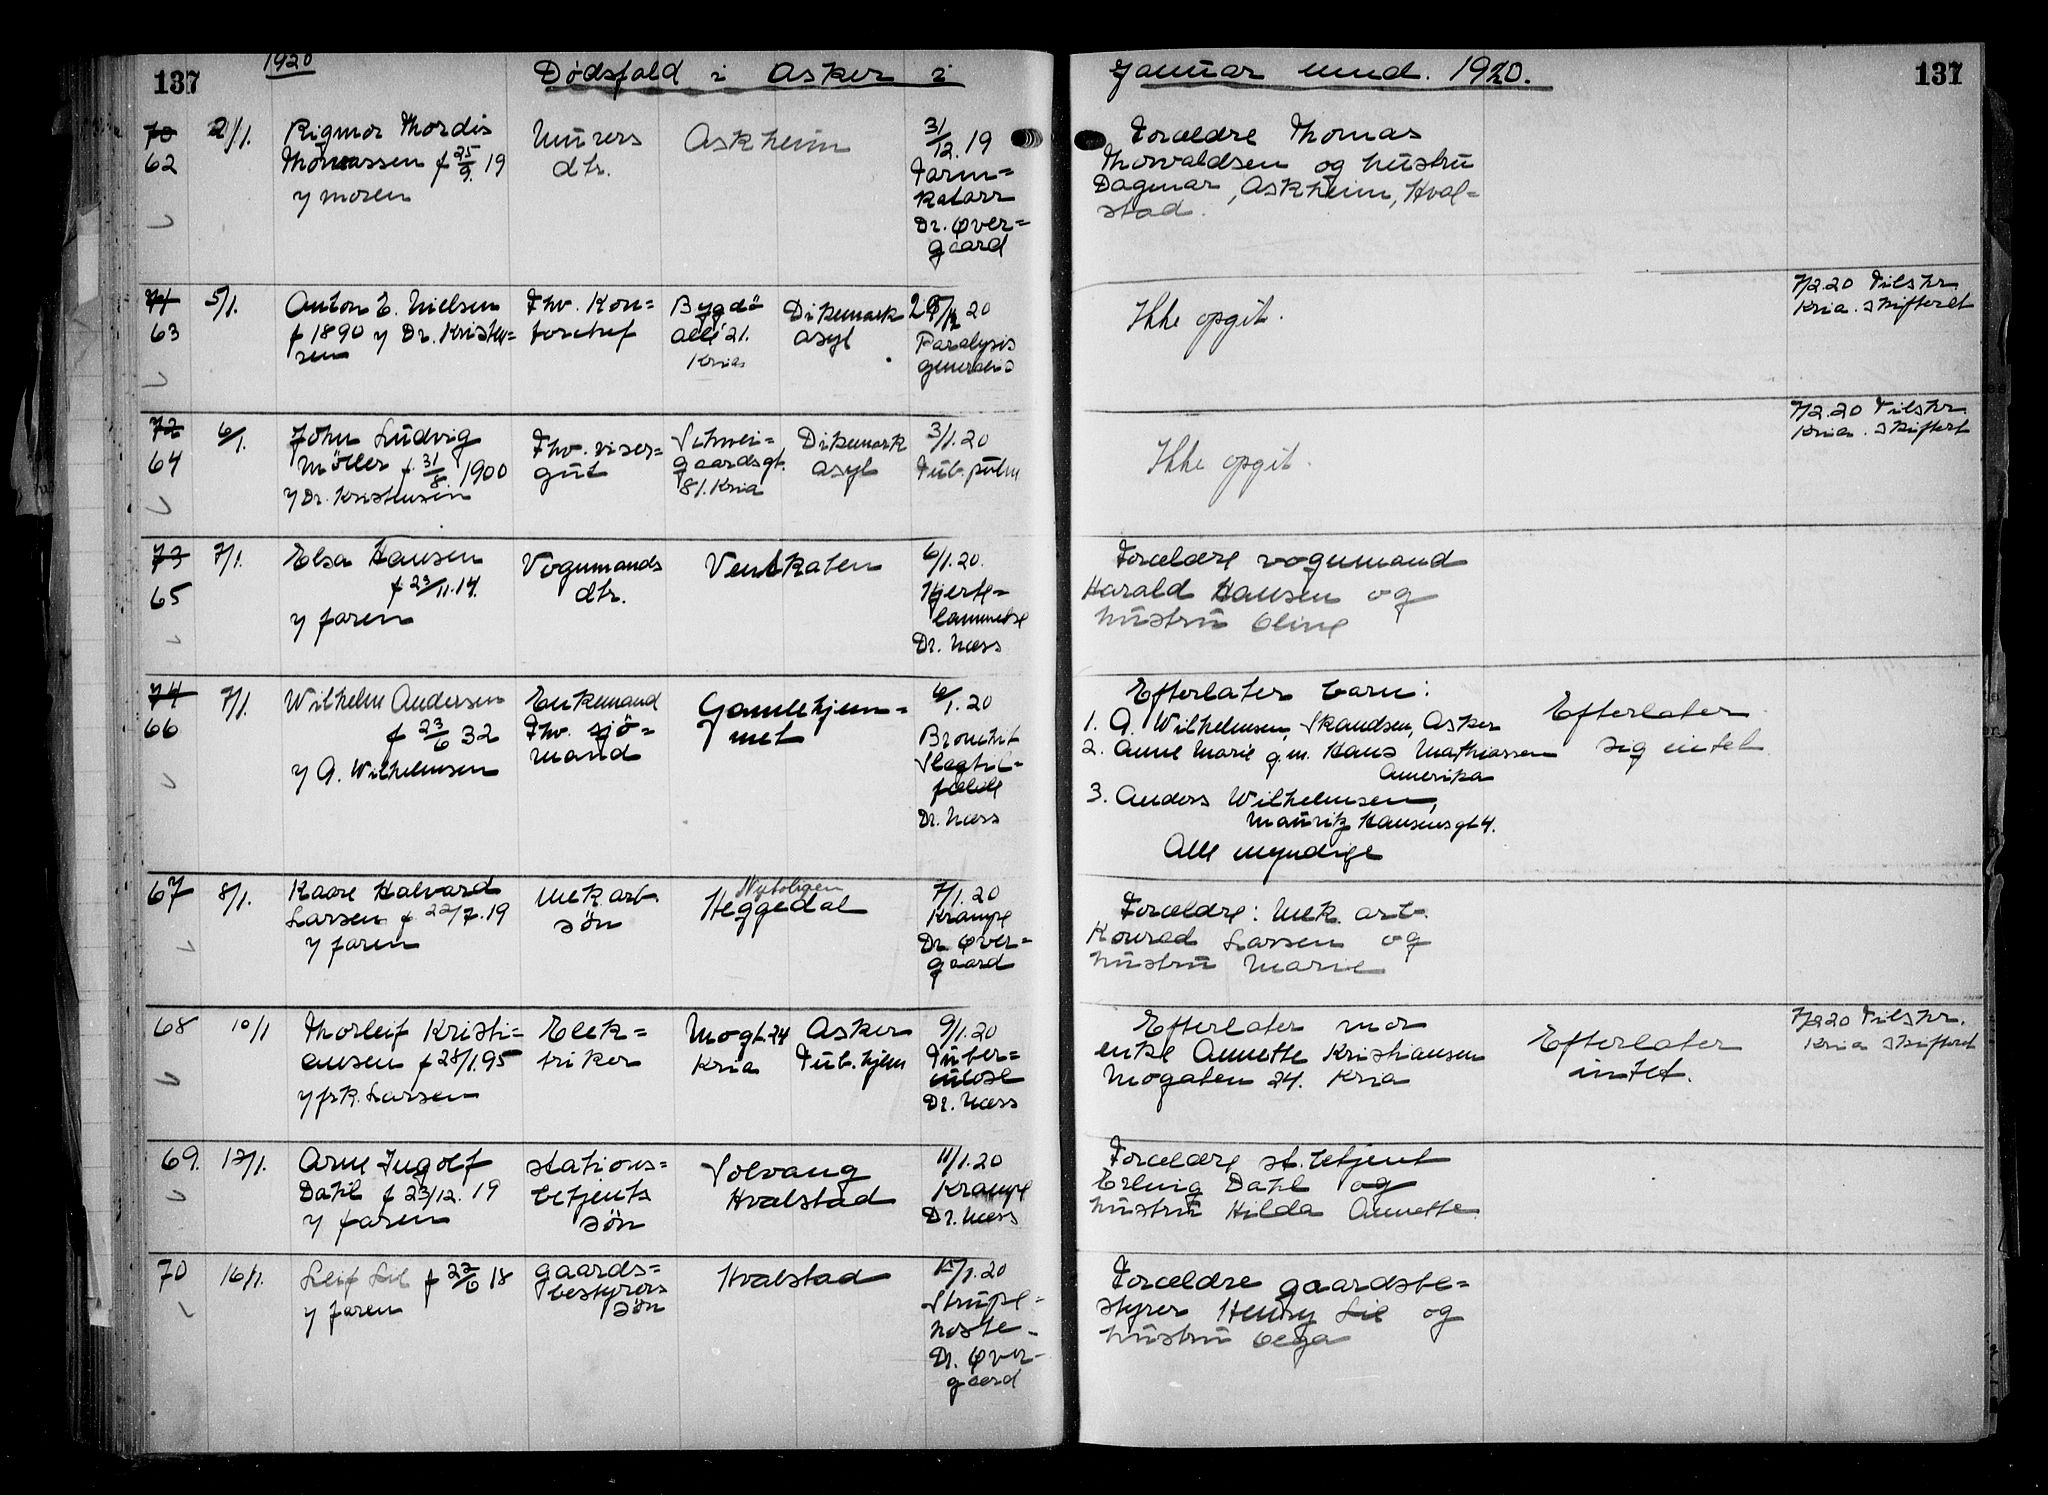 1920
137
Dödsfald i Asker i
Januar mnd. 1920.
137
70
62
2/1.
Rigmor Thordis
Thomassen f 25/9. 19
y moren
Murers
dtr.
Askheim
31/12. 19
Tarm=
katarr
Dr. Øver=
gaard
Forældre Thomas
Thorvaldsen og hustru
Dagmar, Askheim, Hval=
stad.
71
63
5/1.
Anton E. Nielsen
f 1890 y Dr. Kristen=
sen
Fhv. Kon=
torchef
Bygdö
allé 21.
Kria
Dikemark
asyl
20
Paralysis
generalis
Ikke opgit.
7/2.20 Tilskr
Kria. skifteret
72
64
6/1.
John Ludvig
Möller f. 31/8. 1900
y Dr. Kristensen
Fhv. viser=
gut
Schwei=
gaardsgt.
81. Kria
Dikemark
asyl
3/1.20
Tub. pulm
Ikke opgit.
7/2.20 Tilskr
Kria. skifteret
73
65
7/1.
Elsa Hansen
f 23/11.14.
y faren
Vognmands
dtr.
Venskaten
6/1.20.
Hjerte=
lammelse
Dr. Næss
Forældre vognmand
Harald Hansen og
hustru Oline
74
66
7/1.
Wilhelm Andersen
f 23/6 32
y A. Wilhelmsen
Enkemand
Fhv. sjö=
mand
Gamlehjem=
met
6/1.20
Bronchit
Slagtil=
fælde
Dr. Næss
Efterlater barn:
1. A. Wilhelmsen, Skaudsen, Asker
2. Anne Marie g.m. Hans Mathiassen
Amerika
3. Anders Wilhelmsen,
Mauritz Hansensgt 4.
Alle myndige
Efterlater
sig intet
67
8/1.
Kaare Halvard
Larsen f 22/7.19
y faren
Mek arb
sön
Nyboligen
Heggedal
7/1.20
Krampe
Dr. Øver=
gaard
Forældre: Mek. arb.
Konrad Larsen og
hustru Marie
68
10/1
Thorleif Kristi=
ansen f 28/1.95
y frk. Larsen
Elek=
triker
Mogt. 24
Kria
Asker
Tub. hjem
9/1.20
Tuber=
kulose
Dr. Næss
Efterlater mor
enke Annette Kristiansen
Mogaten 24. Kria
Efterlater
intet.
7/2 20 Tilskr.
Kria skifteret
69.
12/1.
Arne Ingolf
Dahl f 23/12. 19
y faren
Stations=
betjents
sön
Solvang
Hvalstad
11/1.20
Krampe
Dr. Næss
Forældre st. betjent
Erling Dahl og
hustru Hilda Annette
70
16/1.
Leif Lie f 22/6 18
y faren
gaards=
bestyrers
sön
Hvalstad
15/1.20
Strupe=
hoste
Dr. Øver=
gaard
Forældre gaardsbe=
styrer Henry Lie og
hustru Olga